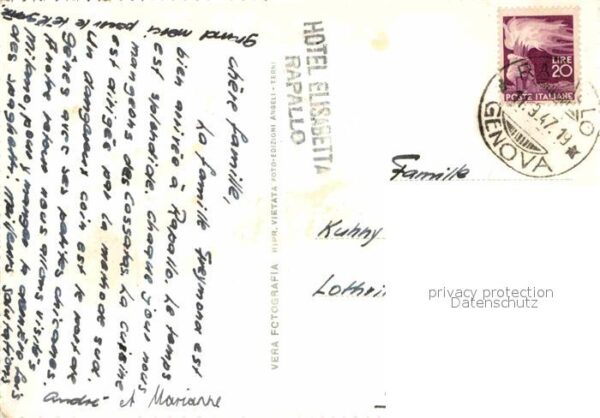 grand merci pour le télégr.
Chère famille,
La famille est
bien arrivée à Rapallo. Le temps
est splendide, chaque jour nous
mangeons des Cassatas. La cuisine
est dirigée par la methode sua.
Un dangereux coin est le port de
Gênes avec ses petites chicanes.
Au retour nous allons visiter
Milano pour y manger la dernière fois
des spaghetti. Meilleurs salutations
André et Marianne
VERA FOTOGRAFIA RIPR. VIETATA FOTO-EDIZIONI ANGELI - TERNI
HOTEL ELISABETTA
RAPALLO
LIRE
20
POSTE ITALIANE
47.19
GENOVA
Famille
Kuhny
Lothri
privacy protection
Datenschutz